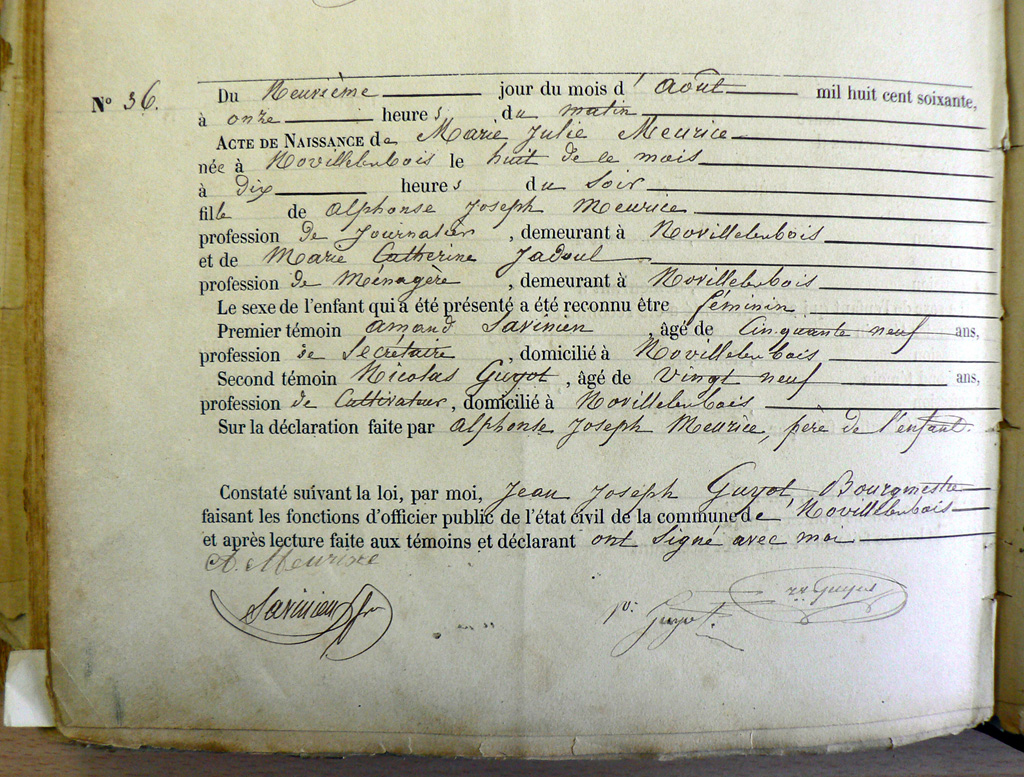 N° 36. Du Neuvième jour du mois d' Août mil huit cent soixante,
à onze heures du matin
ACTE DE NAISSANCE de Marie Julie Meurice
née à Novillelenbois le huit de ce mois
à Dix heures du Soir
fille de Alphonse Joseph Meurice
profession de Journalier, demeurant à Novillelenbois
et de Marie Catherine Jadoul
profession de Ménagère, demeurant à Novillelenbois
Le sexe de l'enfant qui a été présenté a été reconnu être féminin
Premier témoin Amand Savinien, âgé de Cinquante neuf ans,
profession de Secrétaire, domicilié à Novillelenbois
Second témoin Nicolas Guyot, âgé de Vingt neuf ans,
profession de Cultivateur, domicilié à Novillelenbois
Sur la déclaration faite par Alphonse Joseph Meurice, père de l'enfant.
Constaté suivant la loi, par moi, Jean Joseph Guyot, Bourgmestre
faisant les fonctions d'officier public de l'état civil de la commune de Novillelenbois
et après lecture faite aux témoins et déclarant ont Signé avec moi
A. Meurice
Savinien
Guyot.
Guyot